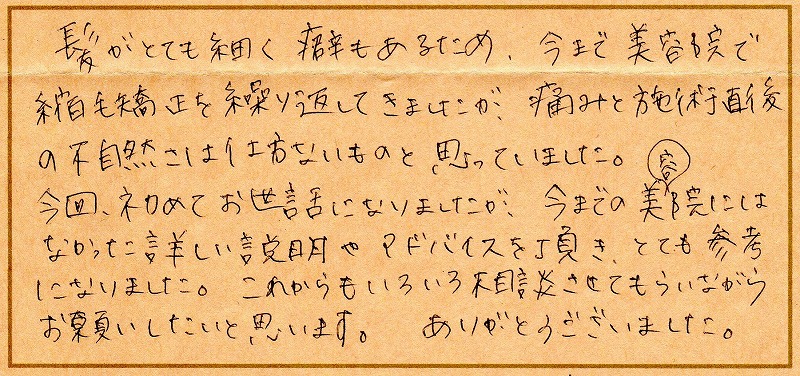 髪がとても細く癖もあるため、今まで美容院で
縮毛矯正を繰り返してきましたが、痛みと施術直後
の不自然さは仕方ないものと思っていました。
今回、初めてお世話になりましたが、今までの美容院には
なかった詳しい説明やアドバイスを頂き、とても参考
になりました。これからもいろいろ相談させてもらいながら
お願いしたいと思います。 ありがとうございました。